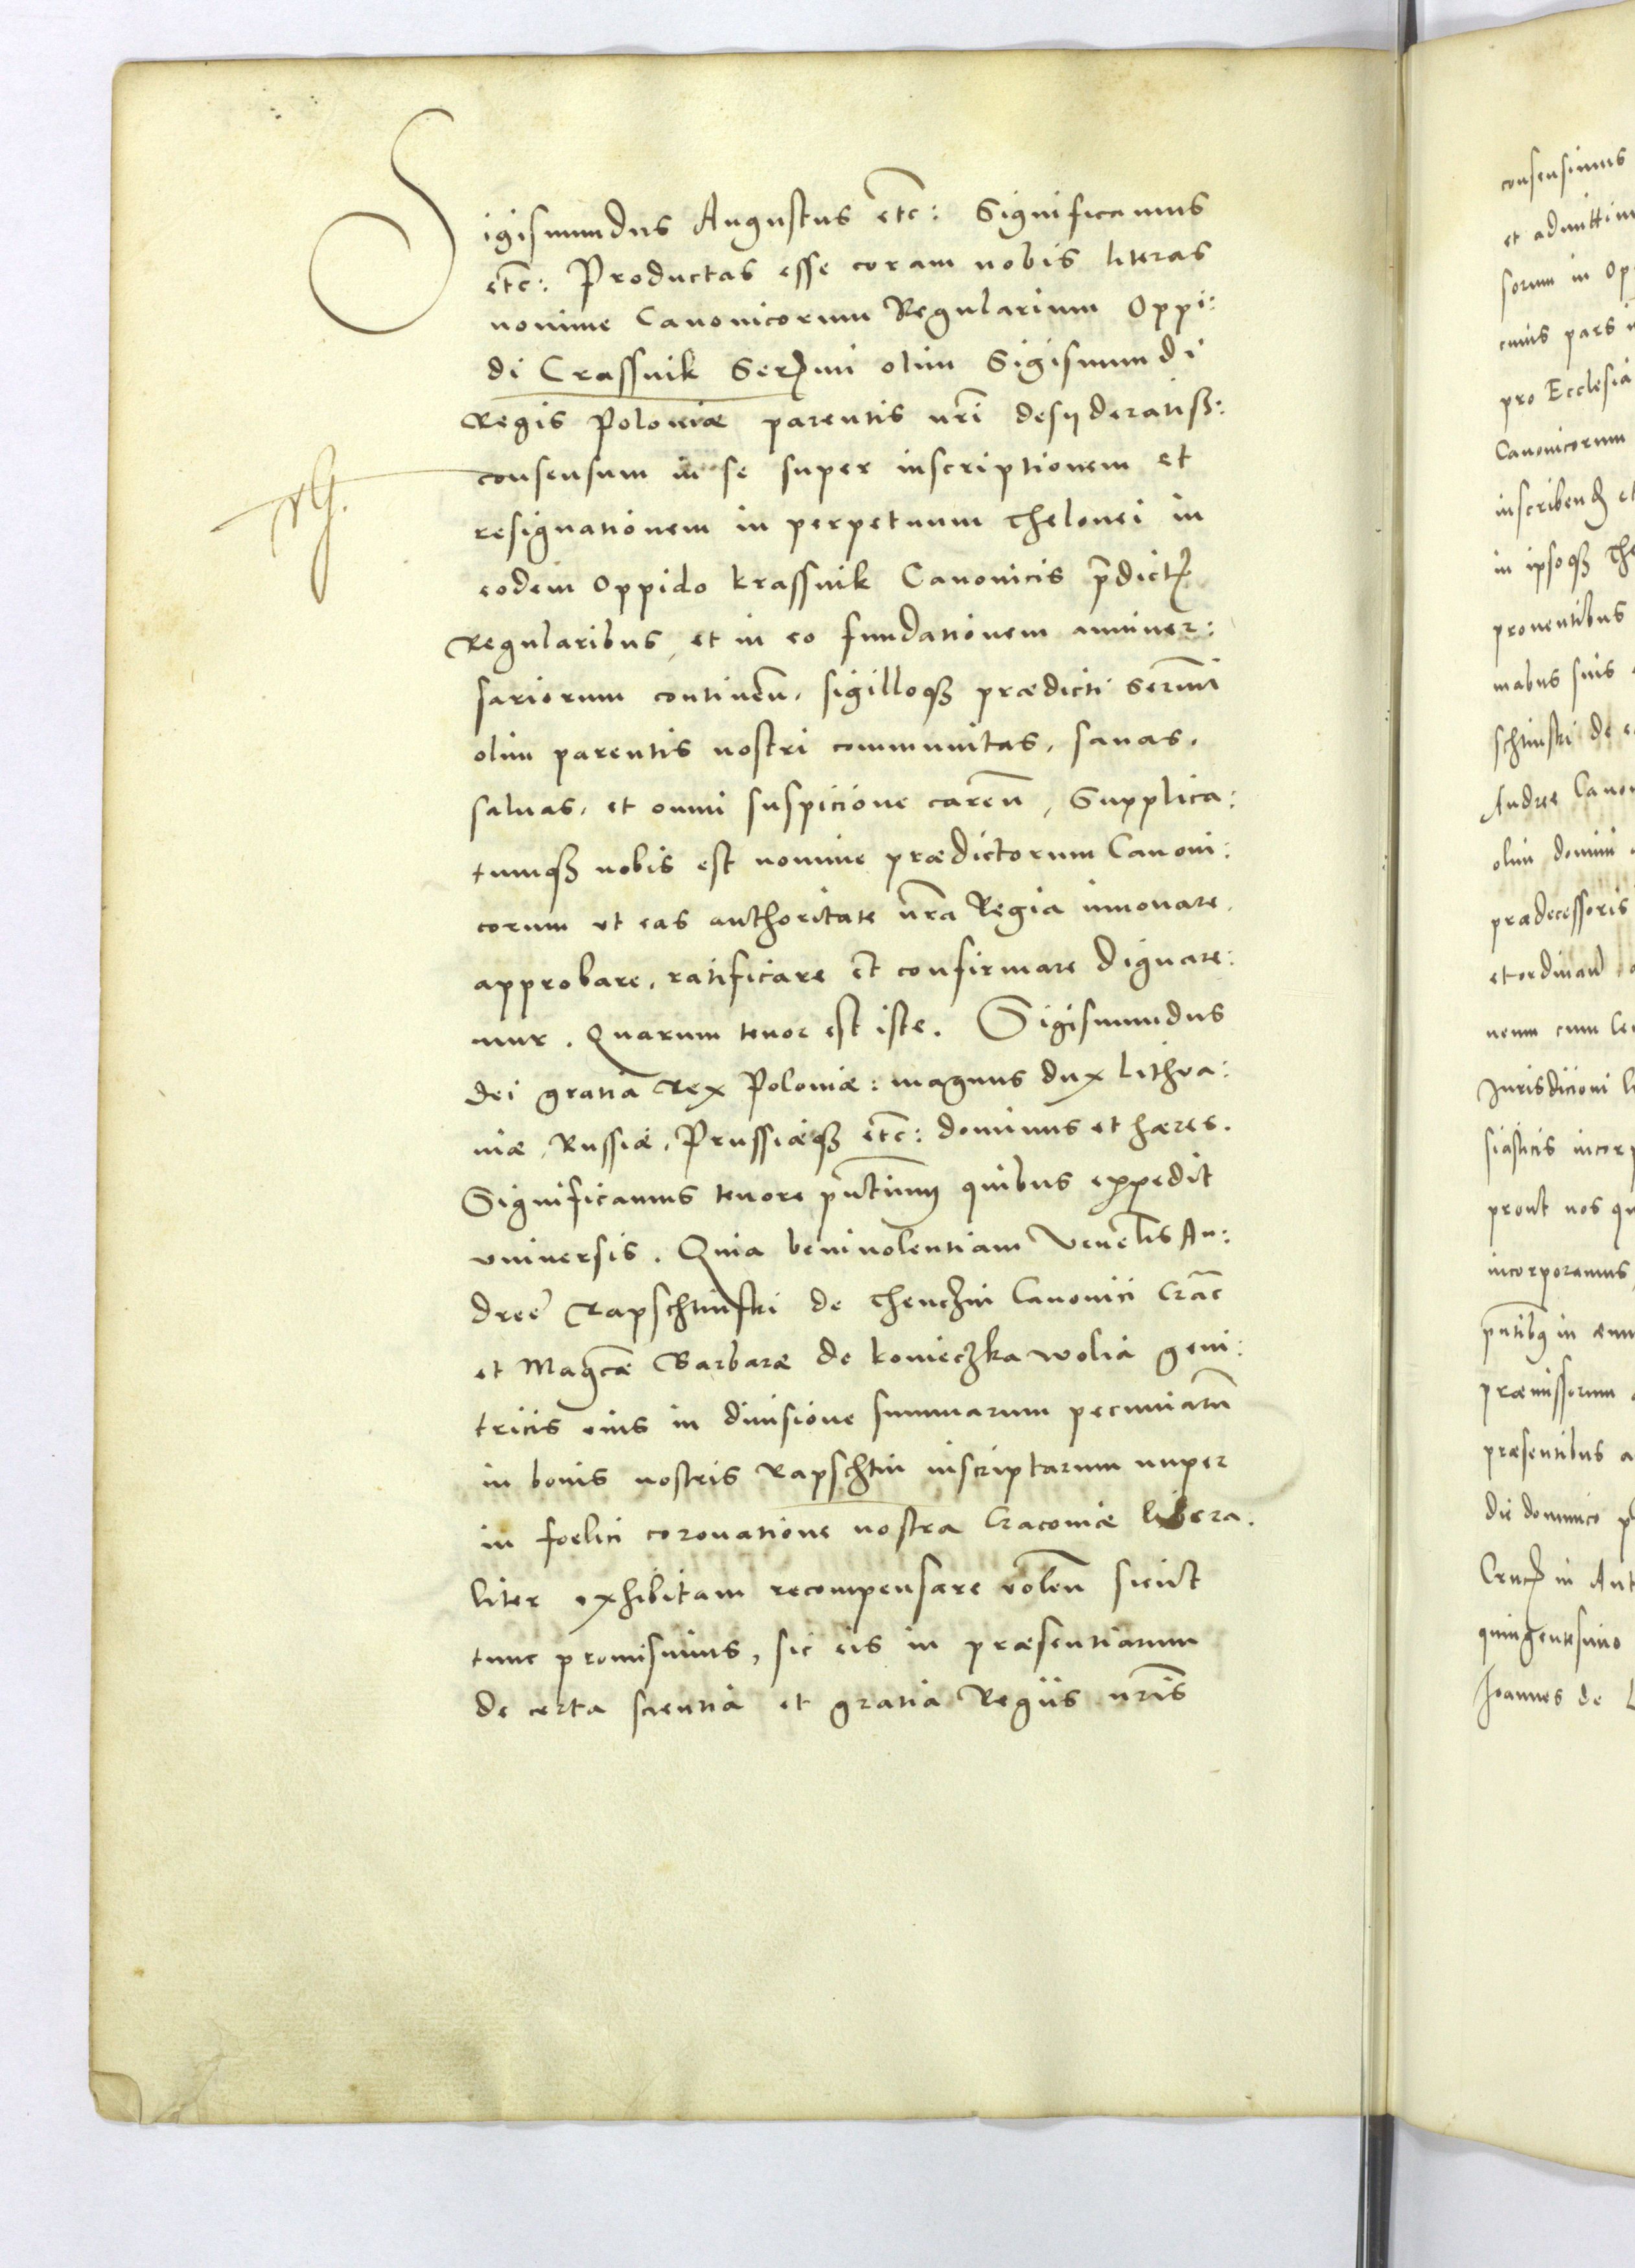 Sigismundus Augustus etc: Significamus
etc: Productas esse coram nobis literas
nomine Canonicorum Regularium Oppi:
di Crassnik Sermi olim Sigismundi
Regis Poloniæ parentis nri desyderatiss:
consensum in se super inscriptionem et
resignationem in perpetuum Thelonei in
eodem Oppido Krassnik Canonicis prdict
Regularibus, et in eo fundationem anniver:
sariorum continen, sigilloq3 prædicti Sermi
olim parentis nostri communitas, sanas,
saluas, et omni suspicione caren, Supplica:
tumq3 nobis est nomine prædictorum Canoni:
corum ut eas authoritate nra Regia innouare,
approbare, ratificare et confirmare dignare:
mur. Quarum tenor est iste. Sigismundus
dei gratia Rex Poloniæ: magnus dux Lithva:
niæ, Russiæ, Prussiæq3 etc: dominus et hæres.
Significamus tenore pntium quibus expedit
vniversis. Quia beniuolentiam Venelis An:
dree Rapschtinski de Thenczin Canonici Crac
et Magcæ Barbaræ de Konieczka wolia geni:
tricis eius in diuisione summarum pecuniaru
in bonis nostris Rapschtin inscriptarum nuper
in foelici coronatione nostra Cracouiæ libera.
liter exhibitam recompensare volen sicut
tunc promisimus, sic eis in præsentiarum
de certa scientia et gratia Regiis nris
consensimus
et admittim
sorum in Op
cuius pars i
pro Ecclesia
Canonicorum
inscribend et
in ipsoq3 The
prouentibus
mabus suis
schtinski de e
Andree Canon
olim domini
prædecessoris
et ordinan
neum cum
Jurisdicioni
siasticis incorp
prout nos qu
incorporamus
pntibq in
præmissorum
præsentibus a
die dominico p
Cruc in Ant
quingentesimo
Joannes de L